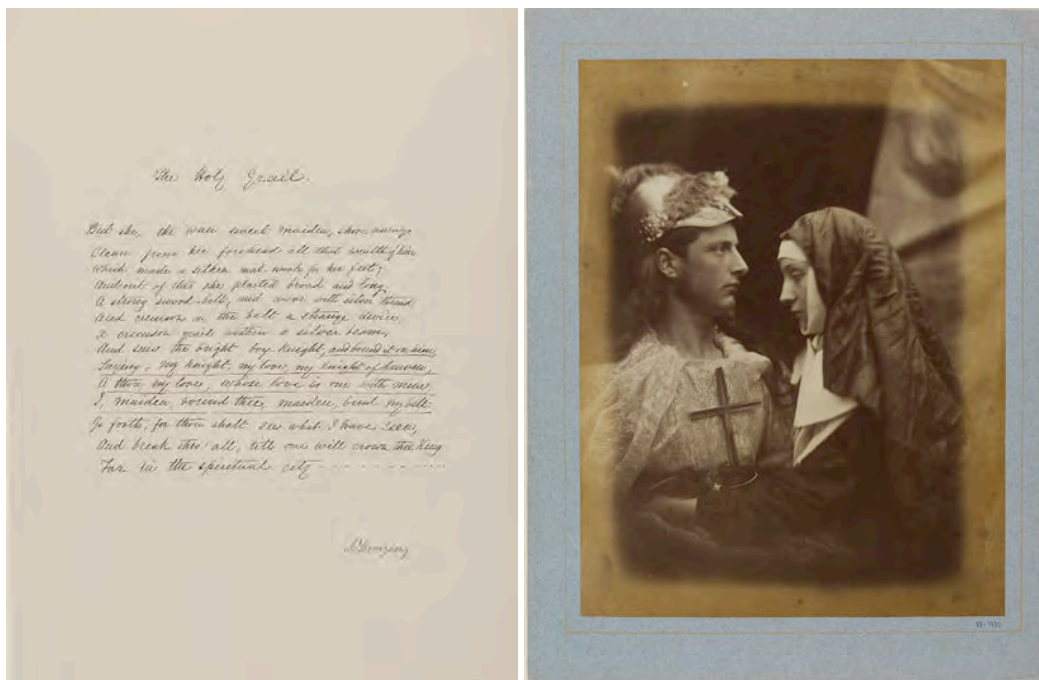 The Holy Grail.
But she, the wan sweet maiden, shore away
Clean from her forehead all that wealth of hair
Which made a silken mat-work for her feet;
And out of this she plaited broad and long
A strong sword-belt, and wove with silver thread
And crimson in the belt a strange device,
A crimson grail within a silver beam,
And saw the bright boy-knight, and bound it on him,
Saying, My knight, my love, my knight of heaven,
O thou, my love, whose love is one with mine,
I, maiden, round thee, maiden, bind my belt.
Go forth, for thou shalt see what I have seen,
And break thro' all, till one will crown thee King
Far in the spiritual city
A Tennyson